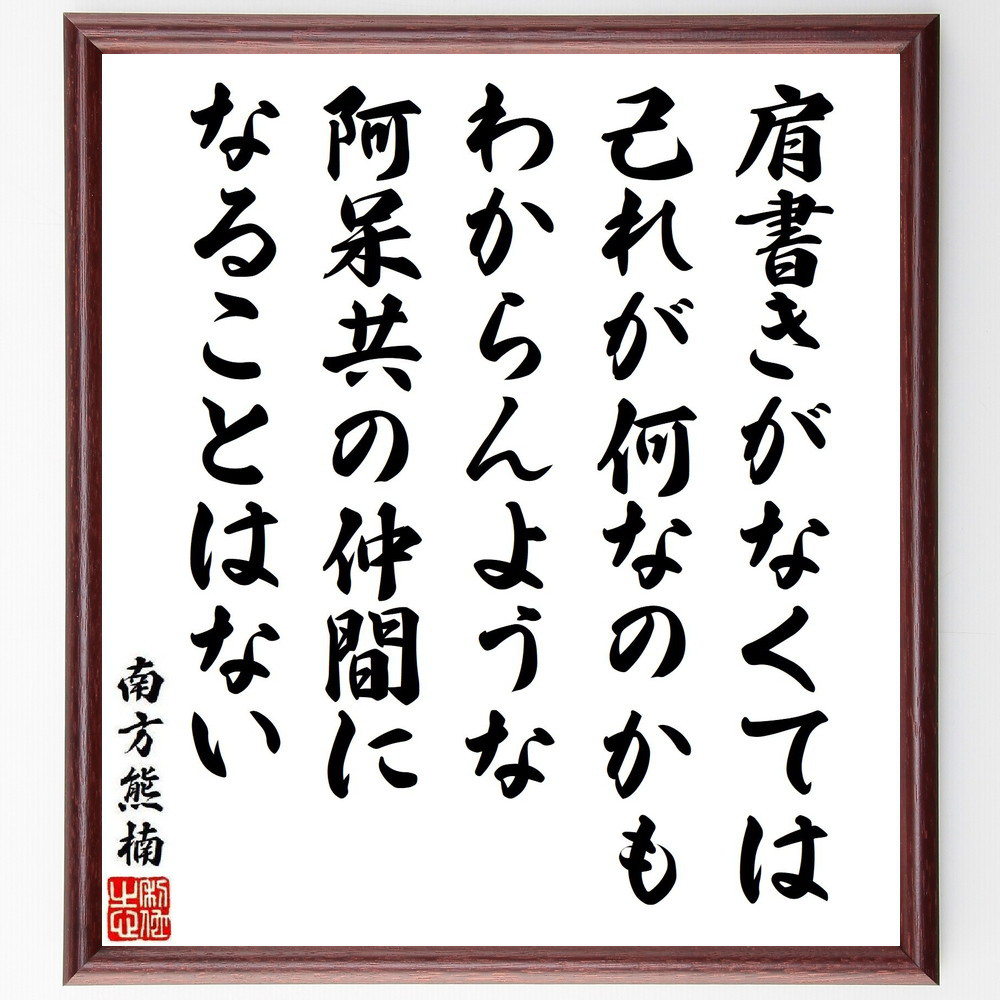 肩書きがなくては
己れが何なのかも
わからんような
阿呆共の仲間に
なることはない
南方熊楠